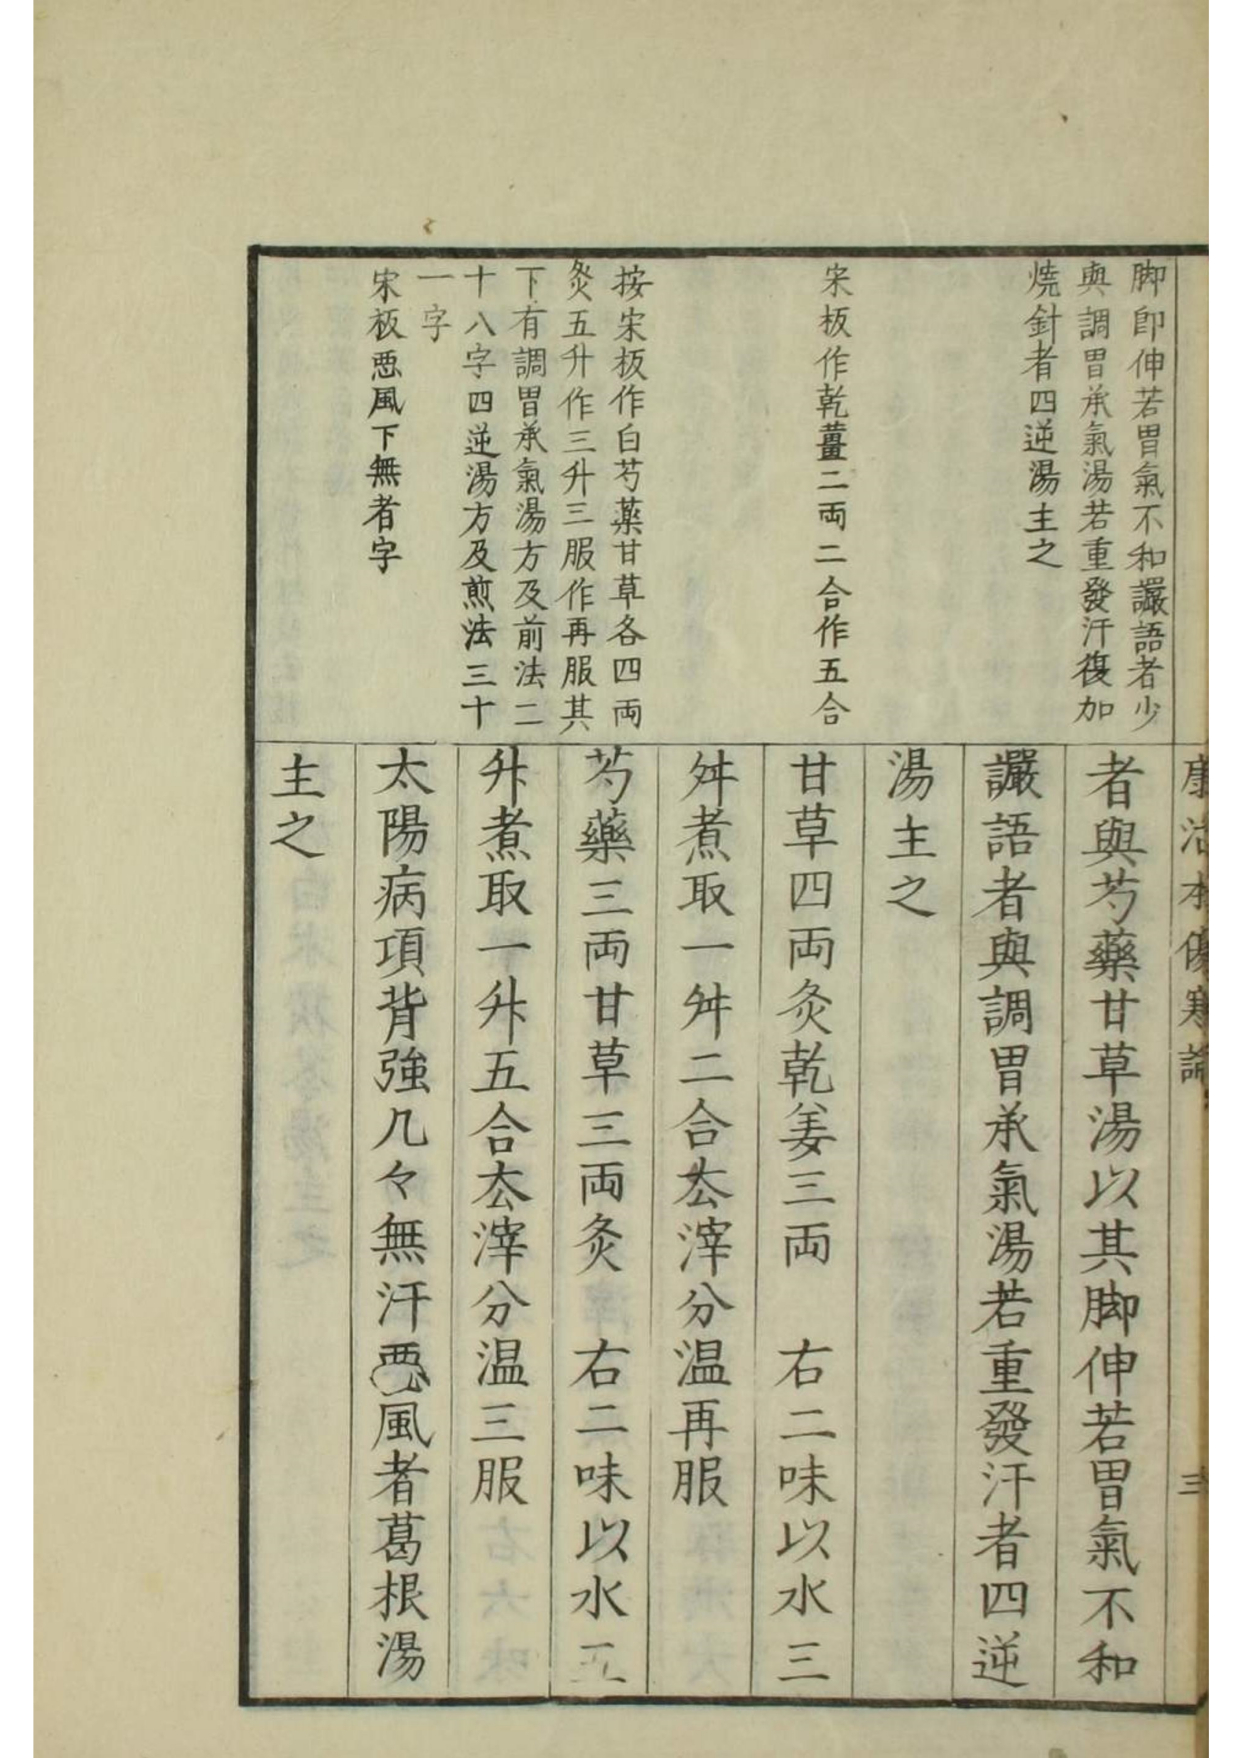 康治本傷寒論 三
脚即伸若胃氣不和讝語者少
與調胃承氣湯若重發汗復加
焼針者四逆湯主之
宋板作乾薑二両二合作五合
按宋板作白芍薬甘草各四両
炙五升作三升三服作再服其
下有調胃承氣湯方及前法二
十八字四逆湯方及煎法三十
一字
宋板悪風下無者字
者與芍藥甘草湯以其脚伸若胃氣不和
讝語者與調胃承氣湯若重發汗者四逆
湯主之
甘草四両炙乾姜三両 右二味以水三
舛煮取一舛二合厺滓分温再服
芍藥三両甘草三両炙 右二味以水五
升煮取一升五合厺滓分温三服
太陽病項背強几々無汗悪風者葛根湯
主之